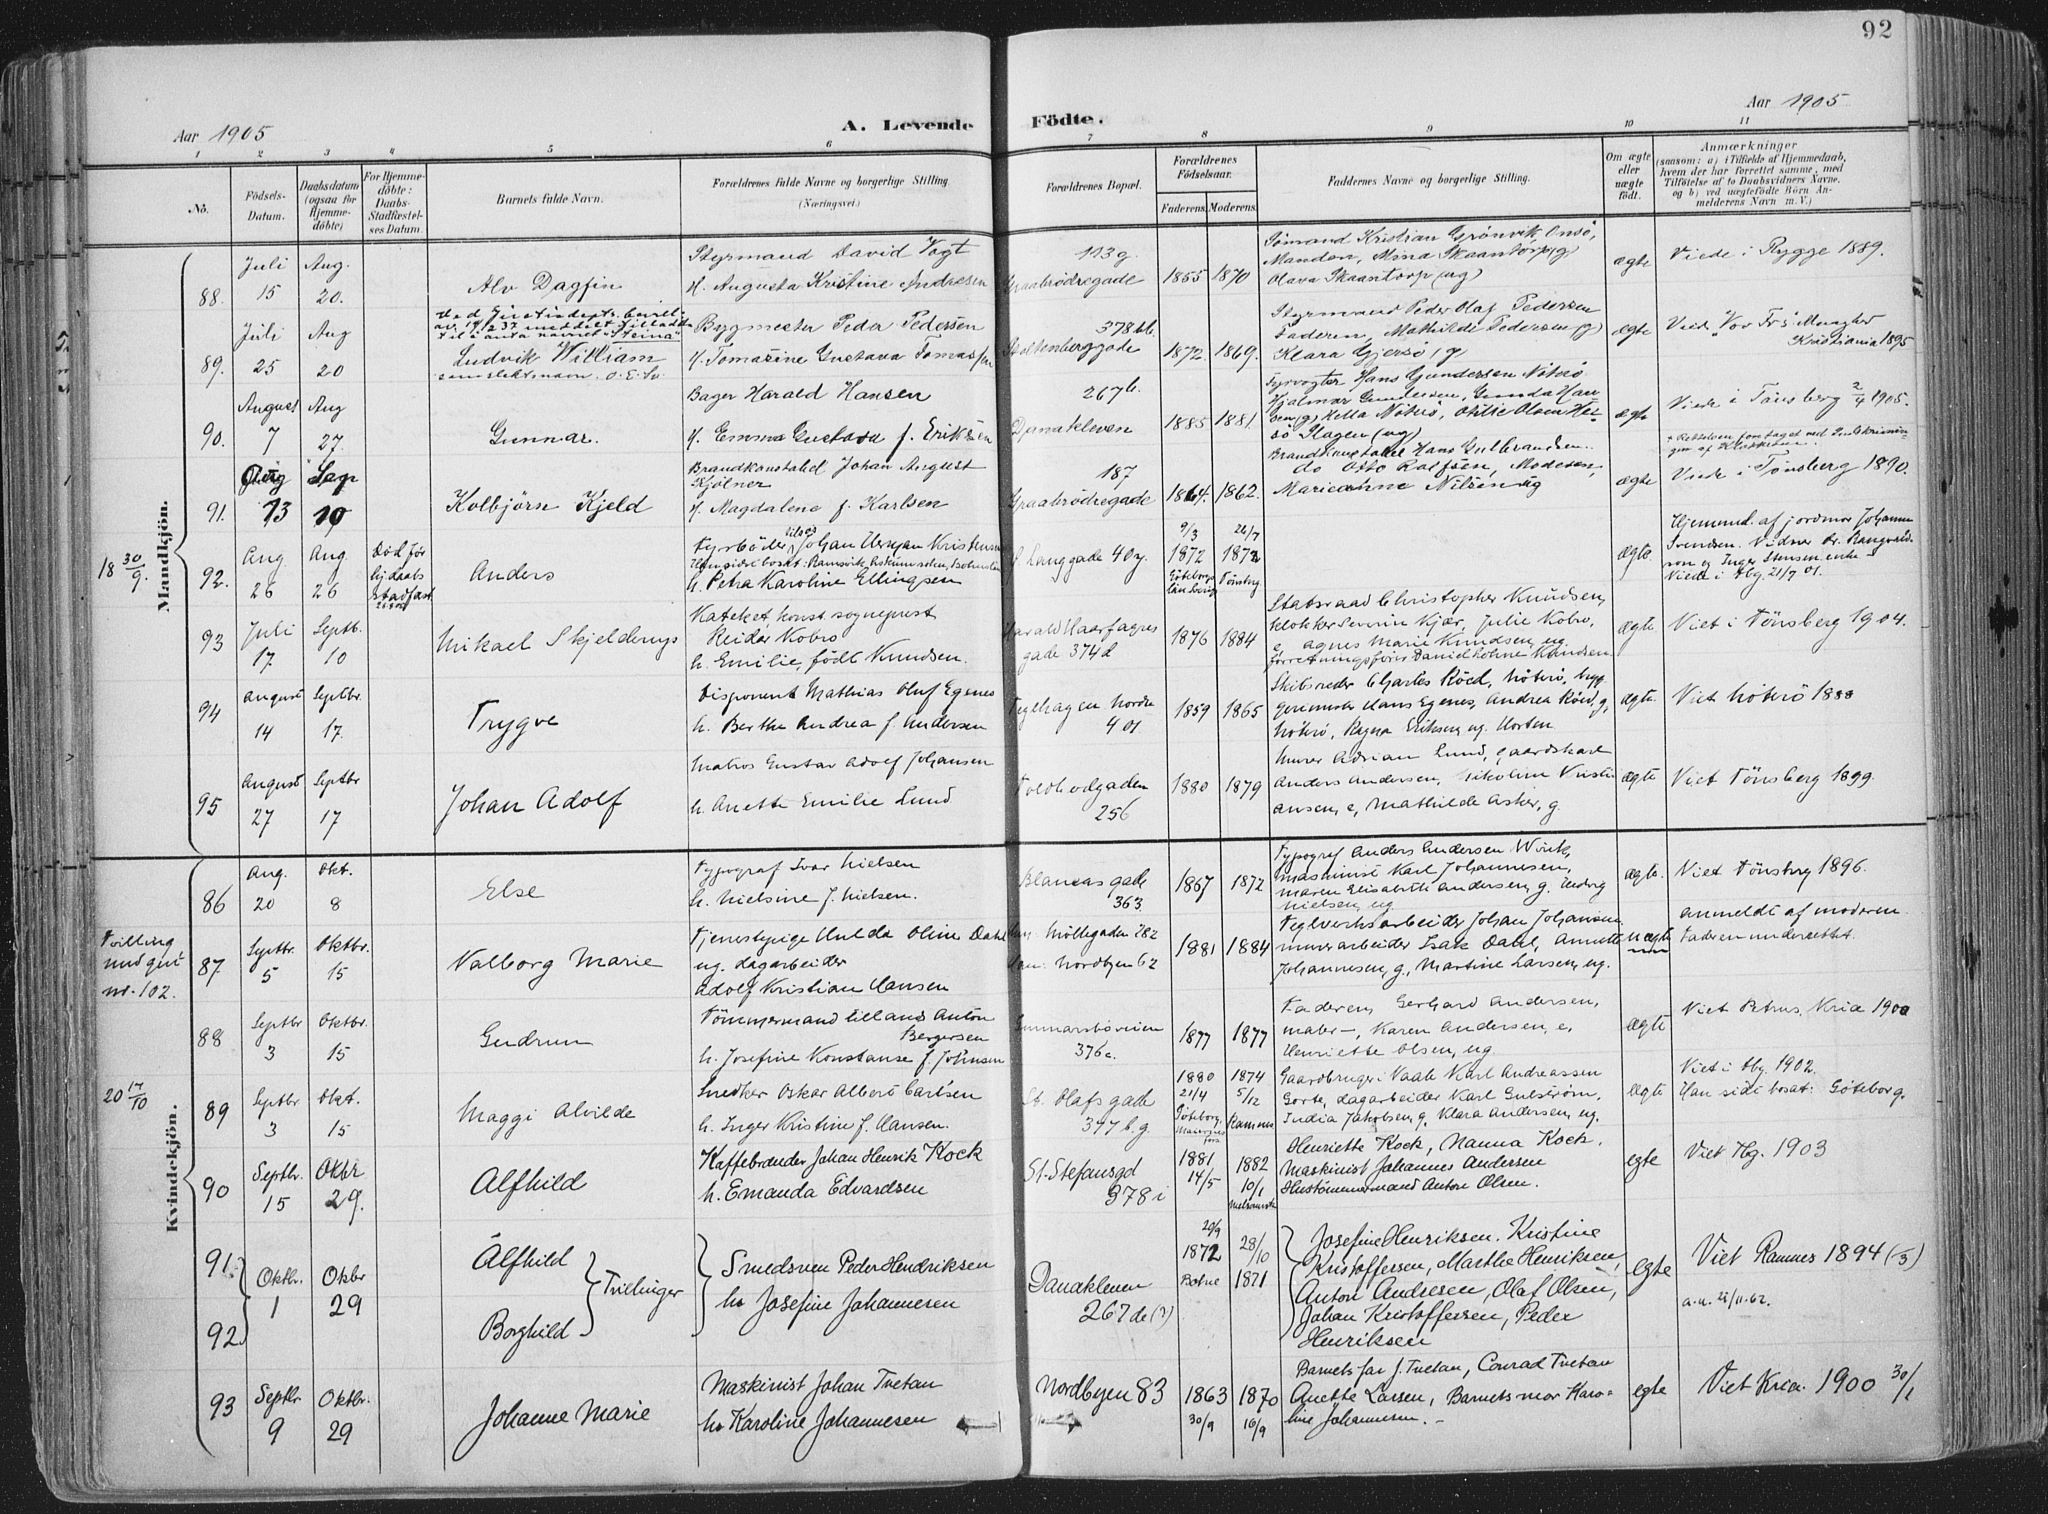 92
Aar 1905
A. Levende Födte.
Aar 1905
1 2 3 4 5 6 7 8 9 10 11
No.
Födsels-Datum.
Daabsdatum (ogsaa for Hjemme-döbte)
For Hjemme-döbte: Daabs-Stadfæstel-ses Datum.
Barnets fulde Navn.
Forældrenes fulde Navne og borgerlige Stilling.
(Næringsvei.)
Forældrenes Bopæl.
Forældrenes Födselsaar.
Faderens. Moderens.
Faddernes Navne og borgerlige Stilling.
Om ægte eller uægte födt.
Anmærkninger
(saasom: a) i Tilfælde af Hjemmedaab, hvem der har forrettet samme, med Tilföielse af to Daabsvidners Navne, og b) ved uægtefödte Börn Anmelderens Navn m. V.)
Mandkjön.
88. Juli 15 Aug. 20. Alv Dagfin
Styrmand David Vogt
H. Augusta Kristine Andresen
113 g. Graabrødregade 1855 1870
Sømand Kristian Grønvik Onsö,
Manden, Mina Skaantorp (g)
Olava Skaantorp (ug)
ægte Viede i Rygge 1889.
89. Juli 25 Aug 20 Ludvik William
Bygmester Peder Pedersen
H. Tomasine Gustava
378 Stoltenberggade 1872. 1869.
Styrmand Peder Olaf Pedersen
Faderen, Mathilde Pedersen (g)
Klara Gjersø, g
ægte Viede Vor Frs Menighed
Kristiania 1895
90. August 7 Aug 27. Gunnar.
Bager Harald Hansen
H. Emma Gustava f. Eriksen
267 b. Danakleven 1885 1881.
Fyrvogter Hans Gundersen Nöterö
Hjalmar Gundersen, Gunda Han-
sen (g) Nöterö, Otilie Olsen
Slagen (ug)
ægte Viede i Tönsberg 2/4 1905.
91. Aug 13 Sep 10 Kolbjörn Kjeld
Brandkonstabel Johan August
Kjölner
H. Magdalene f. Karlsen
187 Graabrødregade 1864. 1862.
Brandkonstabel Hans Gulbrandsen
do Otto Rolfsen, Moderen,
Marieanne Nilsen ug
ægte Viede i Tønsberg 1890.
18 30/9.
92. Aug 26 Aug 26 Død før
Anders
Fyrbøder Johan Herman Kristensen
h. Petra Karoline Ellingsen
Langgade 40 g. 9/3 1872 1872
Göteborgs Tönsberg
ægte Hjemmed. af jordmor Johanne
Svendsen. Vidner
Inger Stensen enke
Viede i Tbg. 21/7 01.
93 Juli 17 Septb. 10 Mikael Skjelderup
Kateket, konst. sogneprest
Reidar Kobro
h. Emilie, født Knudsen.
Harald Haarfagres
gade 374 d 1876 1884
Statsraad Christopher Knudsen,
klokker Severin Kjær, Julie Kobro,
e, Agnes Marie Knudsen, ug
forretningsfører Daniel Knudsen
ægte. Viet i Tönsberg 1904.
94 August 14 Septbr. 17. Trygve
Disponent Mathias Oluf Egenes
h. Berthe Andrea f. Andersen
Teglhagen Nordre 401 1859 1865
Skibsreder Charles Röed, Nöterö, byg-
germester Hans Egenes, Andrea Röed, g,
Nöterö, Ragna Eriksen, ug. Horten
ægte. Viet Nöterö 1888
95 August 27 Septbr 17 Johan Adolf
Matros Gustav Adolf Johansen
h. Anette Emilie Lund
Toldbodgaden
256 1880 1879
Murer Adrian Lund, gaardskarl
Anders Andersen, Nikoline Kristi-
ansen, e, Mathilde Asker, g.
ægte Viet Tönsberg 1899.
Kvindekjön.
86 Aug. 20 Okt. 8 Else
Typograf Ivar Nielsen
h. Nielsine f. Nielsen.
gade
363 1867 1872
Typograf Anders Andersen Wink,
maskinist Karl Johannesen,
Maren Elisabeth Andersen, g.
Nielsen, ug
ægte. Viet Tönsberg 1896.
Tvilling
med gut
nr. 102.
87 Septbr. 5 Oktbr. 15 Valborg Marie
Tjenestepige Hulda Oline Dahl
ug. dagarbeider
Adolf Kristian Hansen
Möllegaden 282
Nordbyen 62 1881 1884
Teglverksarbeider Johan Johansen
murerarbeider Isak Dahl, Annette
Johannesen, g., Martine Larsen, ug.
uægte Anmeldt af moderen
Faderen underrettet.
88 Septbr 3 Oktbr. 15 Gudrun
Tömmermand Lilland Anton
Bergersen
h. Josefine Konstanse f. Johnsen
Gunnarsbøveien
376 c. 1877 1877
Faderen, Gerhard Andersen,
maler –, Karen Andersen, e,
Henriette Olsen, ug
ægte Viet Petrus, Kria 1900
20 17/10
89 Septbr 3 Okt. 15 Maggi Alvilde
Snedker Oskar Albert Carlsen
h. Inger Kristine f. Hansen.
St. Olafs gade
377 b. g. 1880 21/4 1874 5/12
Göteborg Ramnes
Gaardbruger i Vaale Karl Andreassen
Gorte, dagarbeider Karl Gulström,
India Jakobsen, g, Klara Andersen, ug.
ægte Viet i Tbg. 1902.
Han sidst bosat: Göteborg.
90 Septbr. 15 Oktbr 29. Alfhild
Kaffebrænder Johan Henrik Kock
h. Emanda Edvardsen
St. Stefansgd
378 i 1881 14/5 1882 10/1
Henriette Kock, Nanna Kock.
Maskinist Johannes Andersen
Hustömmermand Anton Olsen.
egte Viet Tbg. 1903
91. Alfhild
92. Borghild
Tvillinger
Oktbr. 1 Oktbr 29
Smedsven Peder Hendriksen
h. Josefine Johannesen
Danakleven
267 de (?) 20/9 1872 Botne 28/10 1871
Josefine Henriksen. Kristine
Kristoffersen, Marthe Henriksen,
Anton Andresen, Olaf Olsen,
Johan Kristoffersen, Peder
Henriksen
egte Viet Ramnes 1894
93 Septbr. 9 Oktbr. 29 Johanne Marie
Maskinist Johan Tvetan
h. Karoline Johannesen
Nordbyen 83 1863 30/9 1870 16/9
Barnets far J. Tvetan, Conrad Tvetan
Anette Larsen, Barnets mor Karo-
line Johannesen. –
egte Viet Kria. 1900 30/1